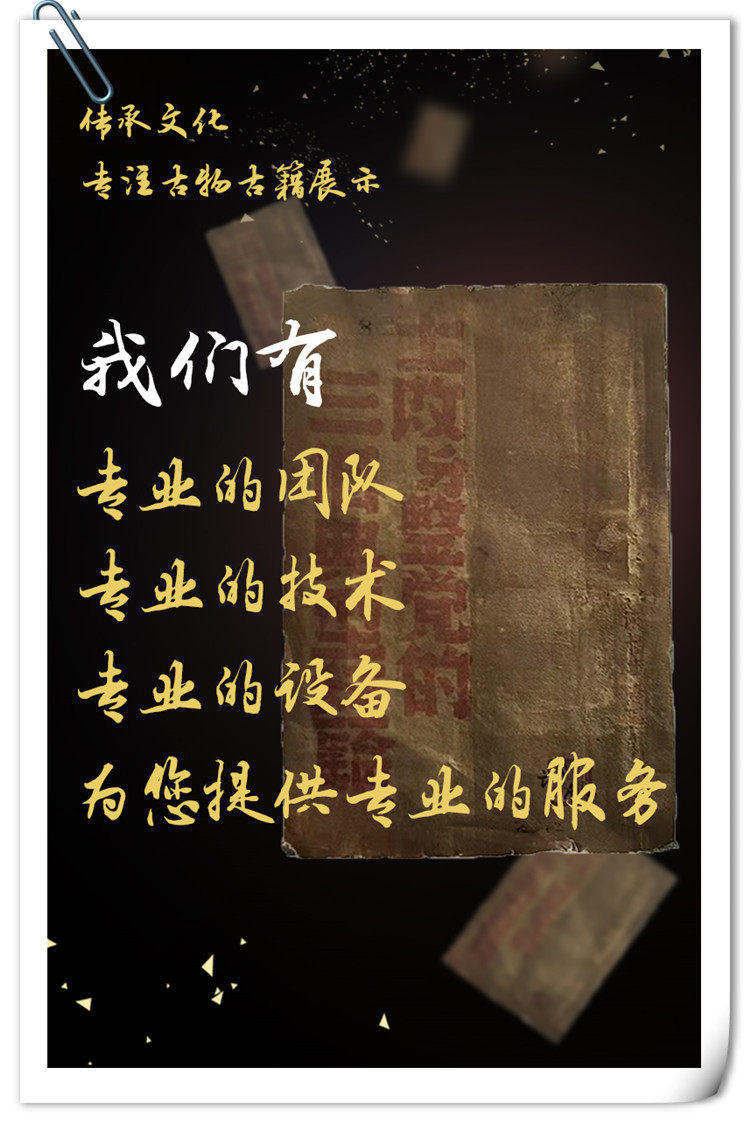 传承文化
专注古物古籍展示
我们有
专业的团队
专业的技术
专业的设备
为您提供专业的服务